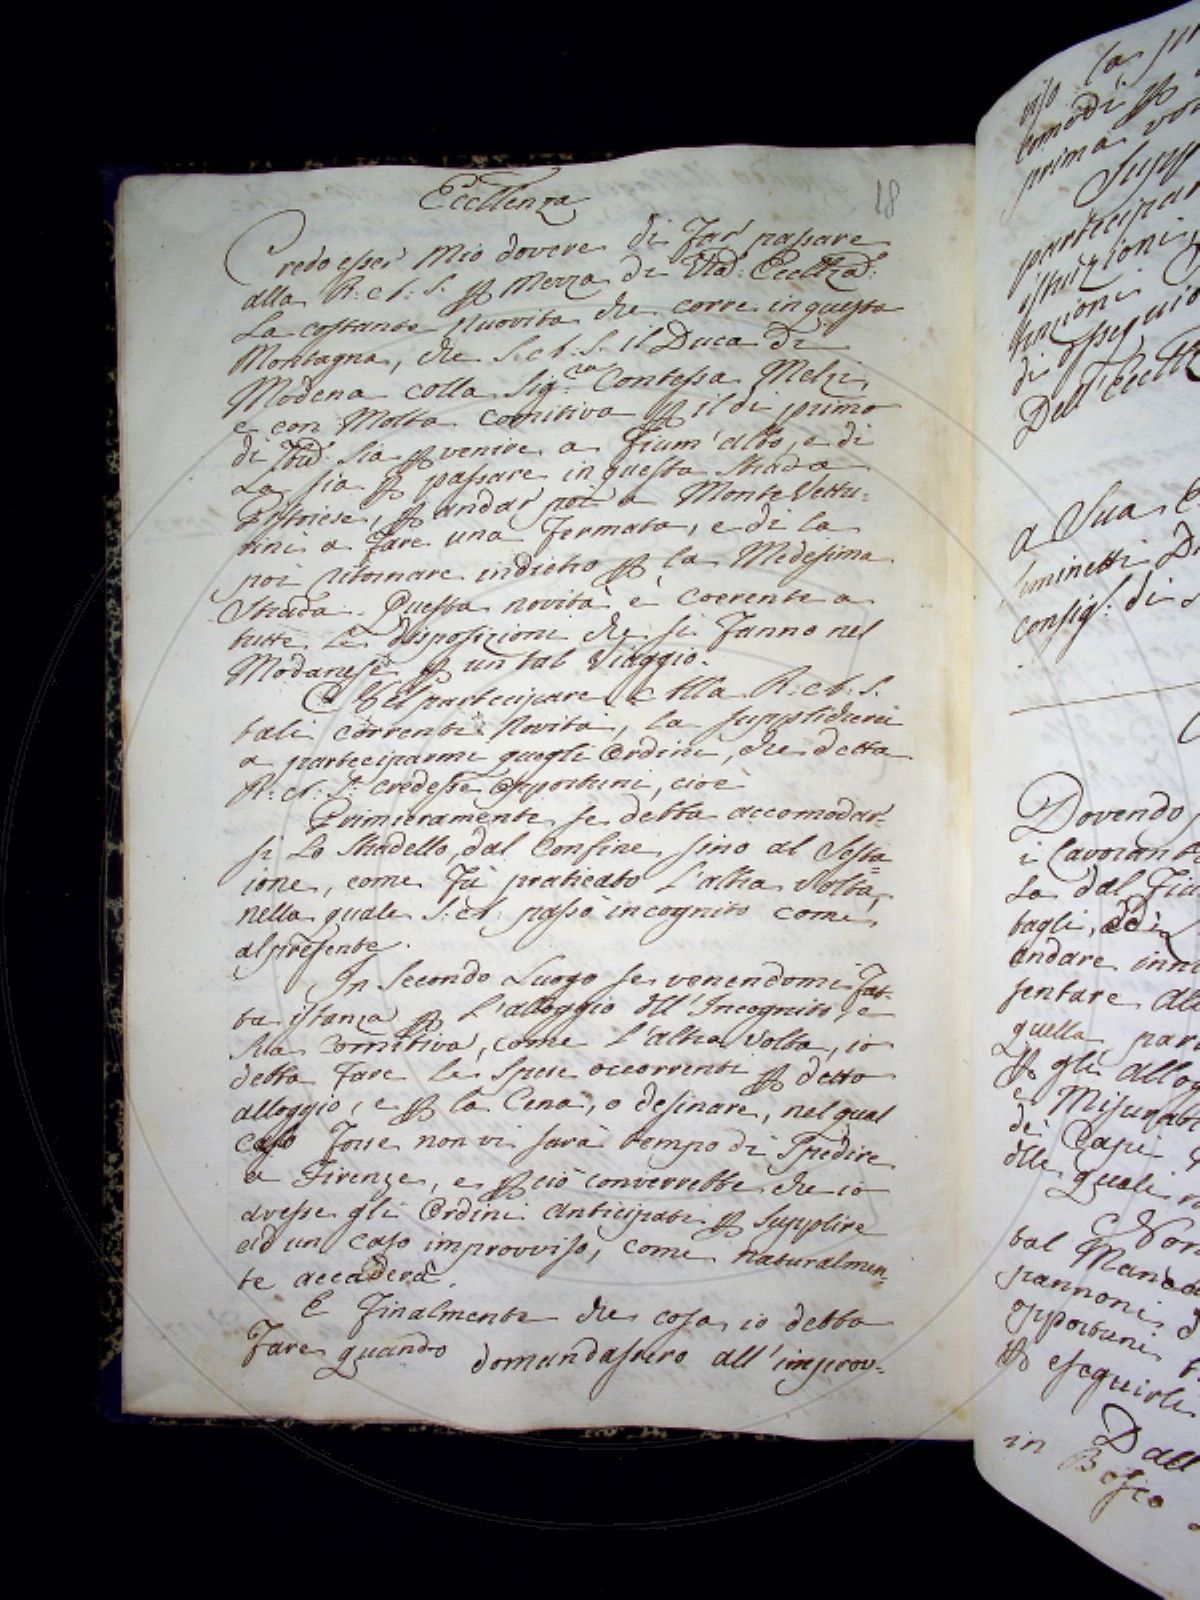 Eccellenza
18
Credo esser mio dovere di far passare
alla R: A: S. per mezza di Vra: Ecclza:
La costante Nuovita che corre in questa
Montagna, che S. A. S. il Duca di
Modena colla Sig.ra Contessa Melzi,
e con Molta comitiva per il di primo
di sia per venire a Fium'albo, e di
La sia per passare in questa Strada
Pistoiese, per andar poi a Monte Vettu:
rini a fare una fermata, e di la
poi ritornare indietro per la Medesima
Strada. Questa novità è coerente a
tutte le disposizioni che si fanno nel
Modanese per un tal Viaggio.
Nel partecipare alla R: A: S.
tali correnti Novità, la
a parteciparmi quegli Ordini, che detta
R: A: S: credesse opportuni, cioè
Primieramente se debba accomodar-
si Lo Stradello, dal Confine sino al Sesta
ione, come fù praticato l'altra Volta,
nella quale S: A: passò incognito come
al presente.
In Secondo Luogo se venendomi fat-
ta istanza per L'alloggio dell'Incognito, e
sua comitiva, come l'altra Volta, io
debba fare le spese occorrenti per detto
alloggio, e per la Cena, o desinare, nel qual
caso forse non vi sarà tempo di Spedire
a Firenze, e per ciò converrebbe che io
avesse gli Ordini anticipati per supplire
ad un caso improvviso, come naturalmen-
te accaderà.
E finalmente che cosa io debba
fare quando domandassero all'improv-
viso la
comodi per
prima
Supp
partecipar
istruzioni,
di ossequio
Dell'Eccllz
a Sua
consig: di
Dovendo
i Lavoranti
La dal Fiu
tagli,
andare inn
sentare al
quella par
per gli allog
e Misurar
de' Capi
dlle quali
Non
tal Manca
pannoni
opportuni
per eseguirli
Dall
in Bosco